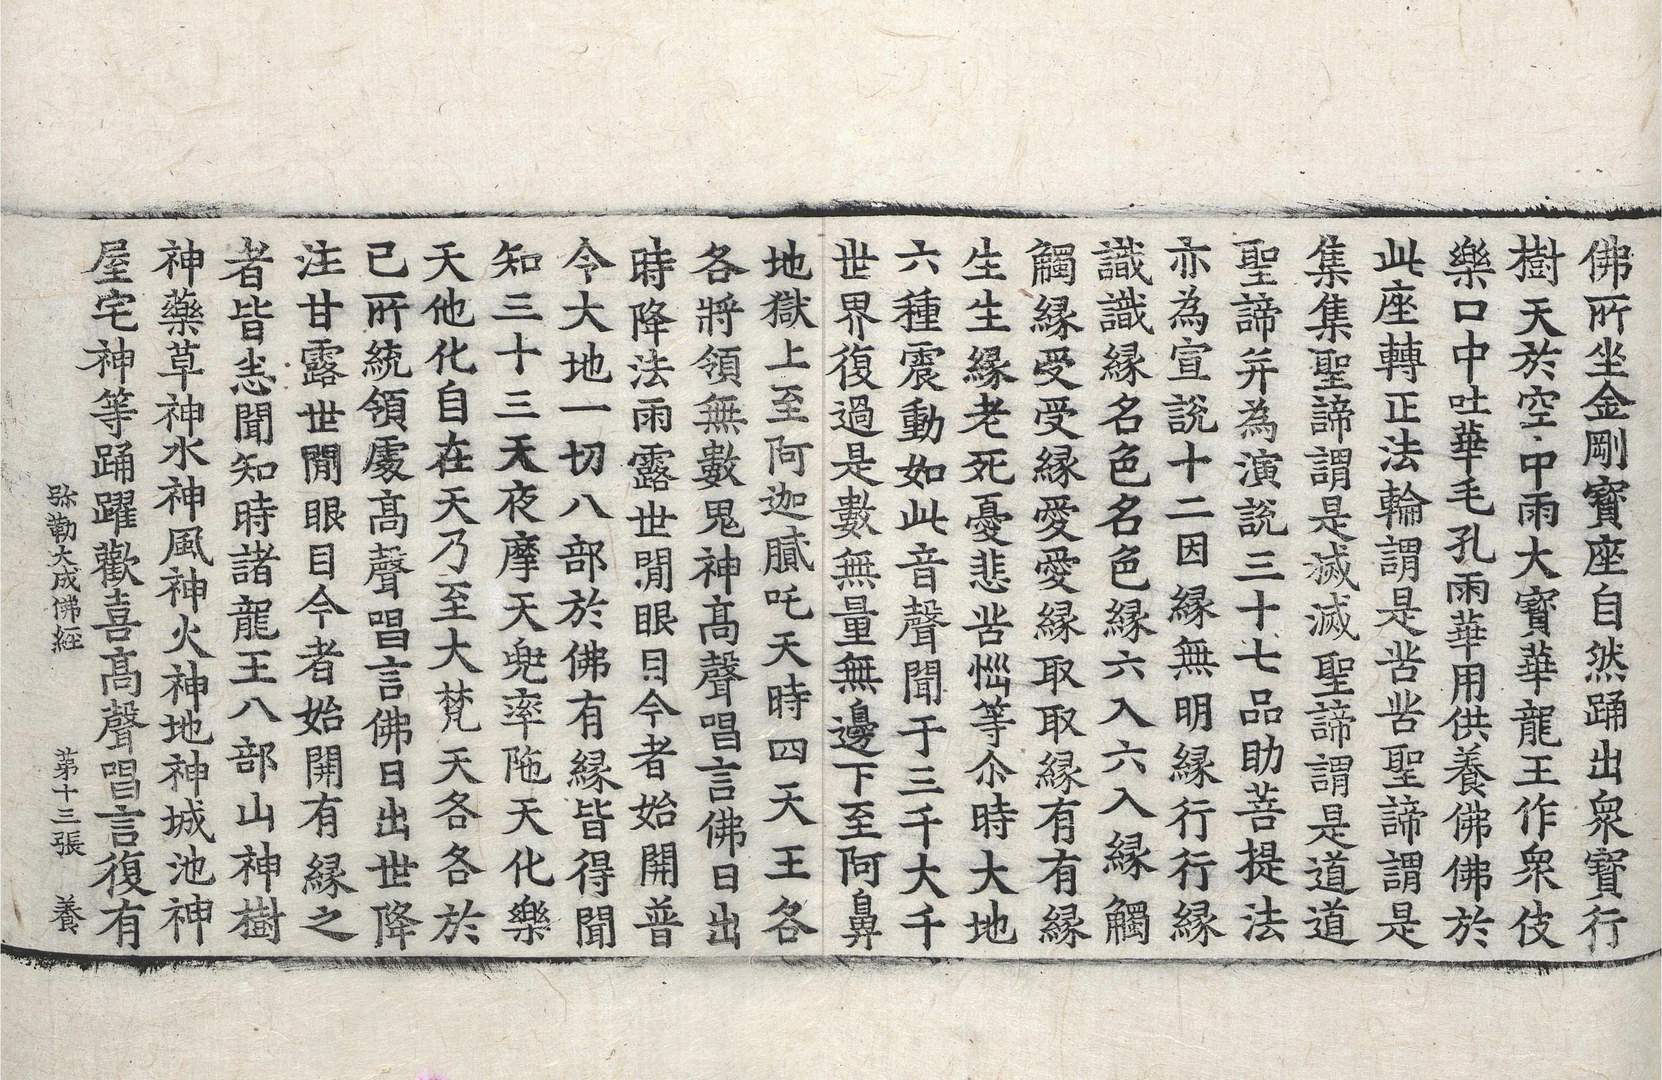 佛所坐金剛寶座自然踊出衆寶行
樹天於空中雨大寶華龍王作衆伎
樂口中吐華毛孔雨華用供養佛佛於
此座轉正法輪謂是苦苦聖諦謂是
集集聖諦謂是滅滅聖諦謂是道道
聖諦并為演說三十七品助菩提法
亦為宣說十二因緣無明緣行行緣
識識緣名色名色緣六入六入緣觸
觸緣受受緣愛愛緣取取緣有有緣
生生緣老死憂悲苦惱等尒時大地
六種震動如此音聲聞于三千大千
世界復過是數無量無邊下至阿鼻
地獄上至阿迦膩吒天時四天王各
各將領無數鬼神高聲唱言佛日出
時降法雨露世閒眼目今者始開普
令大地一切八部於佛有緣皆得聞
知三十三天夜摩天兜率陁天化樂
天他化自在天乃至大梵天各各於
己所統領處高聲唱言佛日出世降
注甘露世閒眼目今者始開有緣之
者皆悉聞知時諸龍王八部山神樹
神藥草神水神風神火神地神城池神
屋宅神等踊躍歡喜高聲唱言復有
弥勒大成佛經 苐十三張 養